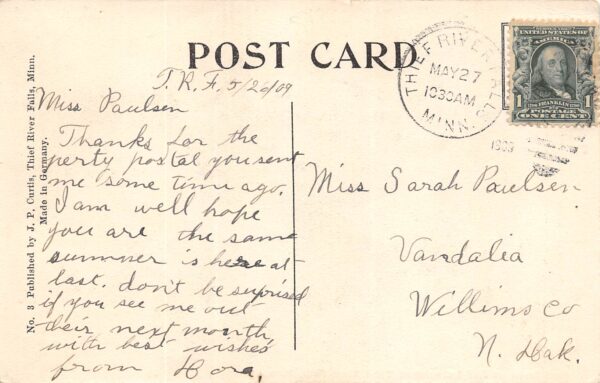 POST CARD
THIEF RIVER FALLS
MAY 27
1030AM
MINN.
1909
UNITED STATES OF
AMERICA
FRANKLIN
POSTAGE
ONE CENT
1
No. 3 Published by J. P. Curtis, Thief River Falls, Minn.
Made in Germany.
T. R. F. 5/26/09
Miss Paulsen
Thanks for the
perty postal you sent
me some time ago.
I am well hope
you are the same
summer is here at
last. don't be surprised
if you see me out
their next month
with best wishes
from Cora.
Miss Sarah Paulsen
Vandalia
Willims Co
N. Dak.